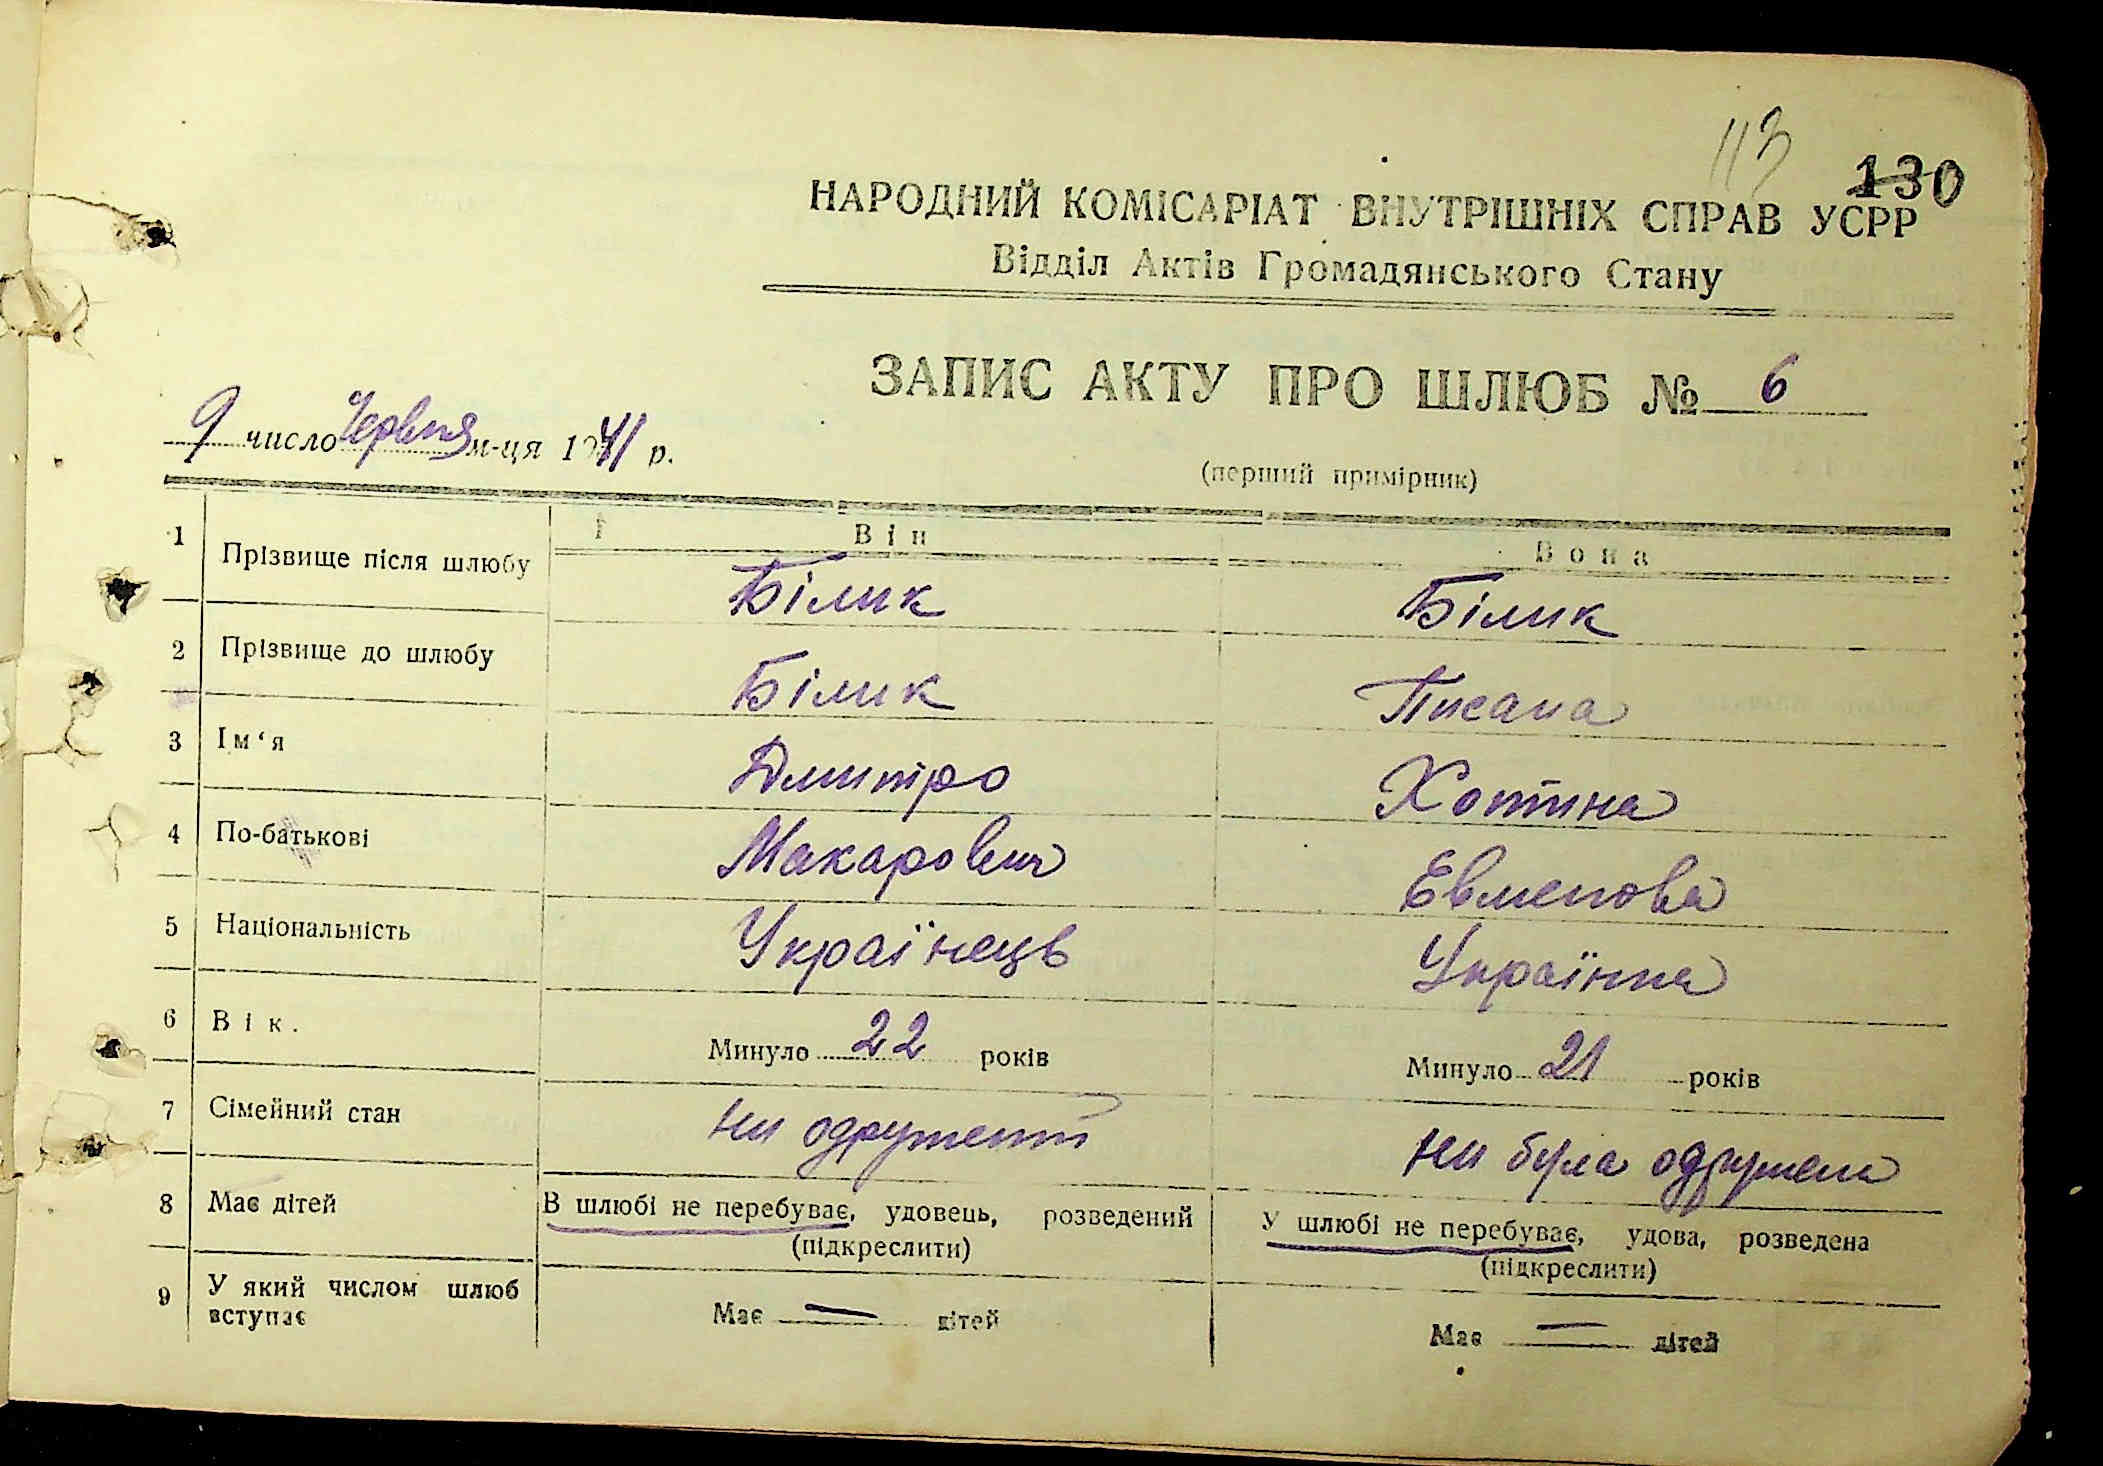 113 130
НАРОДНИЙ КОМІСАРІАТ ВНУТРІШНІХ СПРАВ УСРР
Відділ Актів Громадянського Стану
ЗАПИС АКТУ ПРО ШЛЮБ № 6
9 число Червня м-ця 1941 р.
(перший примірник)
Він Вона
1 Прізвище після шлюбу Білик Білик
2 Прізвище до шлюбу Білик Писана
3 Ім‘я Дмитро Хотина
4 По-батькові Макарович Евменова
5 Національність Українець Українка
6 Вік. Минуло 22 років Минуло 21 років
7 Сімейний стан ни одружений ни була одружена
8 Має дітей В шлюбі не перебуває, удовець, розведений У шлюбі не перебуває, удова, розведена
(підкреслити) (підкреслити)
9 У який числом шлюб Має — дітей Має — дітей
вступає